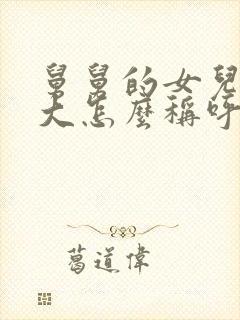 舅舅的女兒
大怎麼稱呼
葛道偉